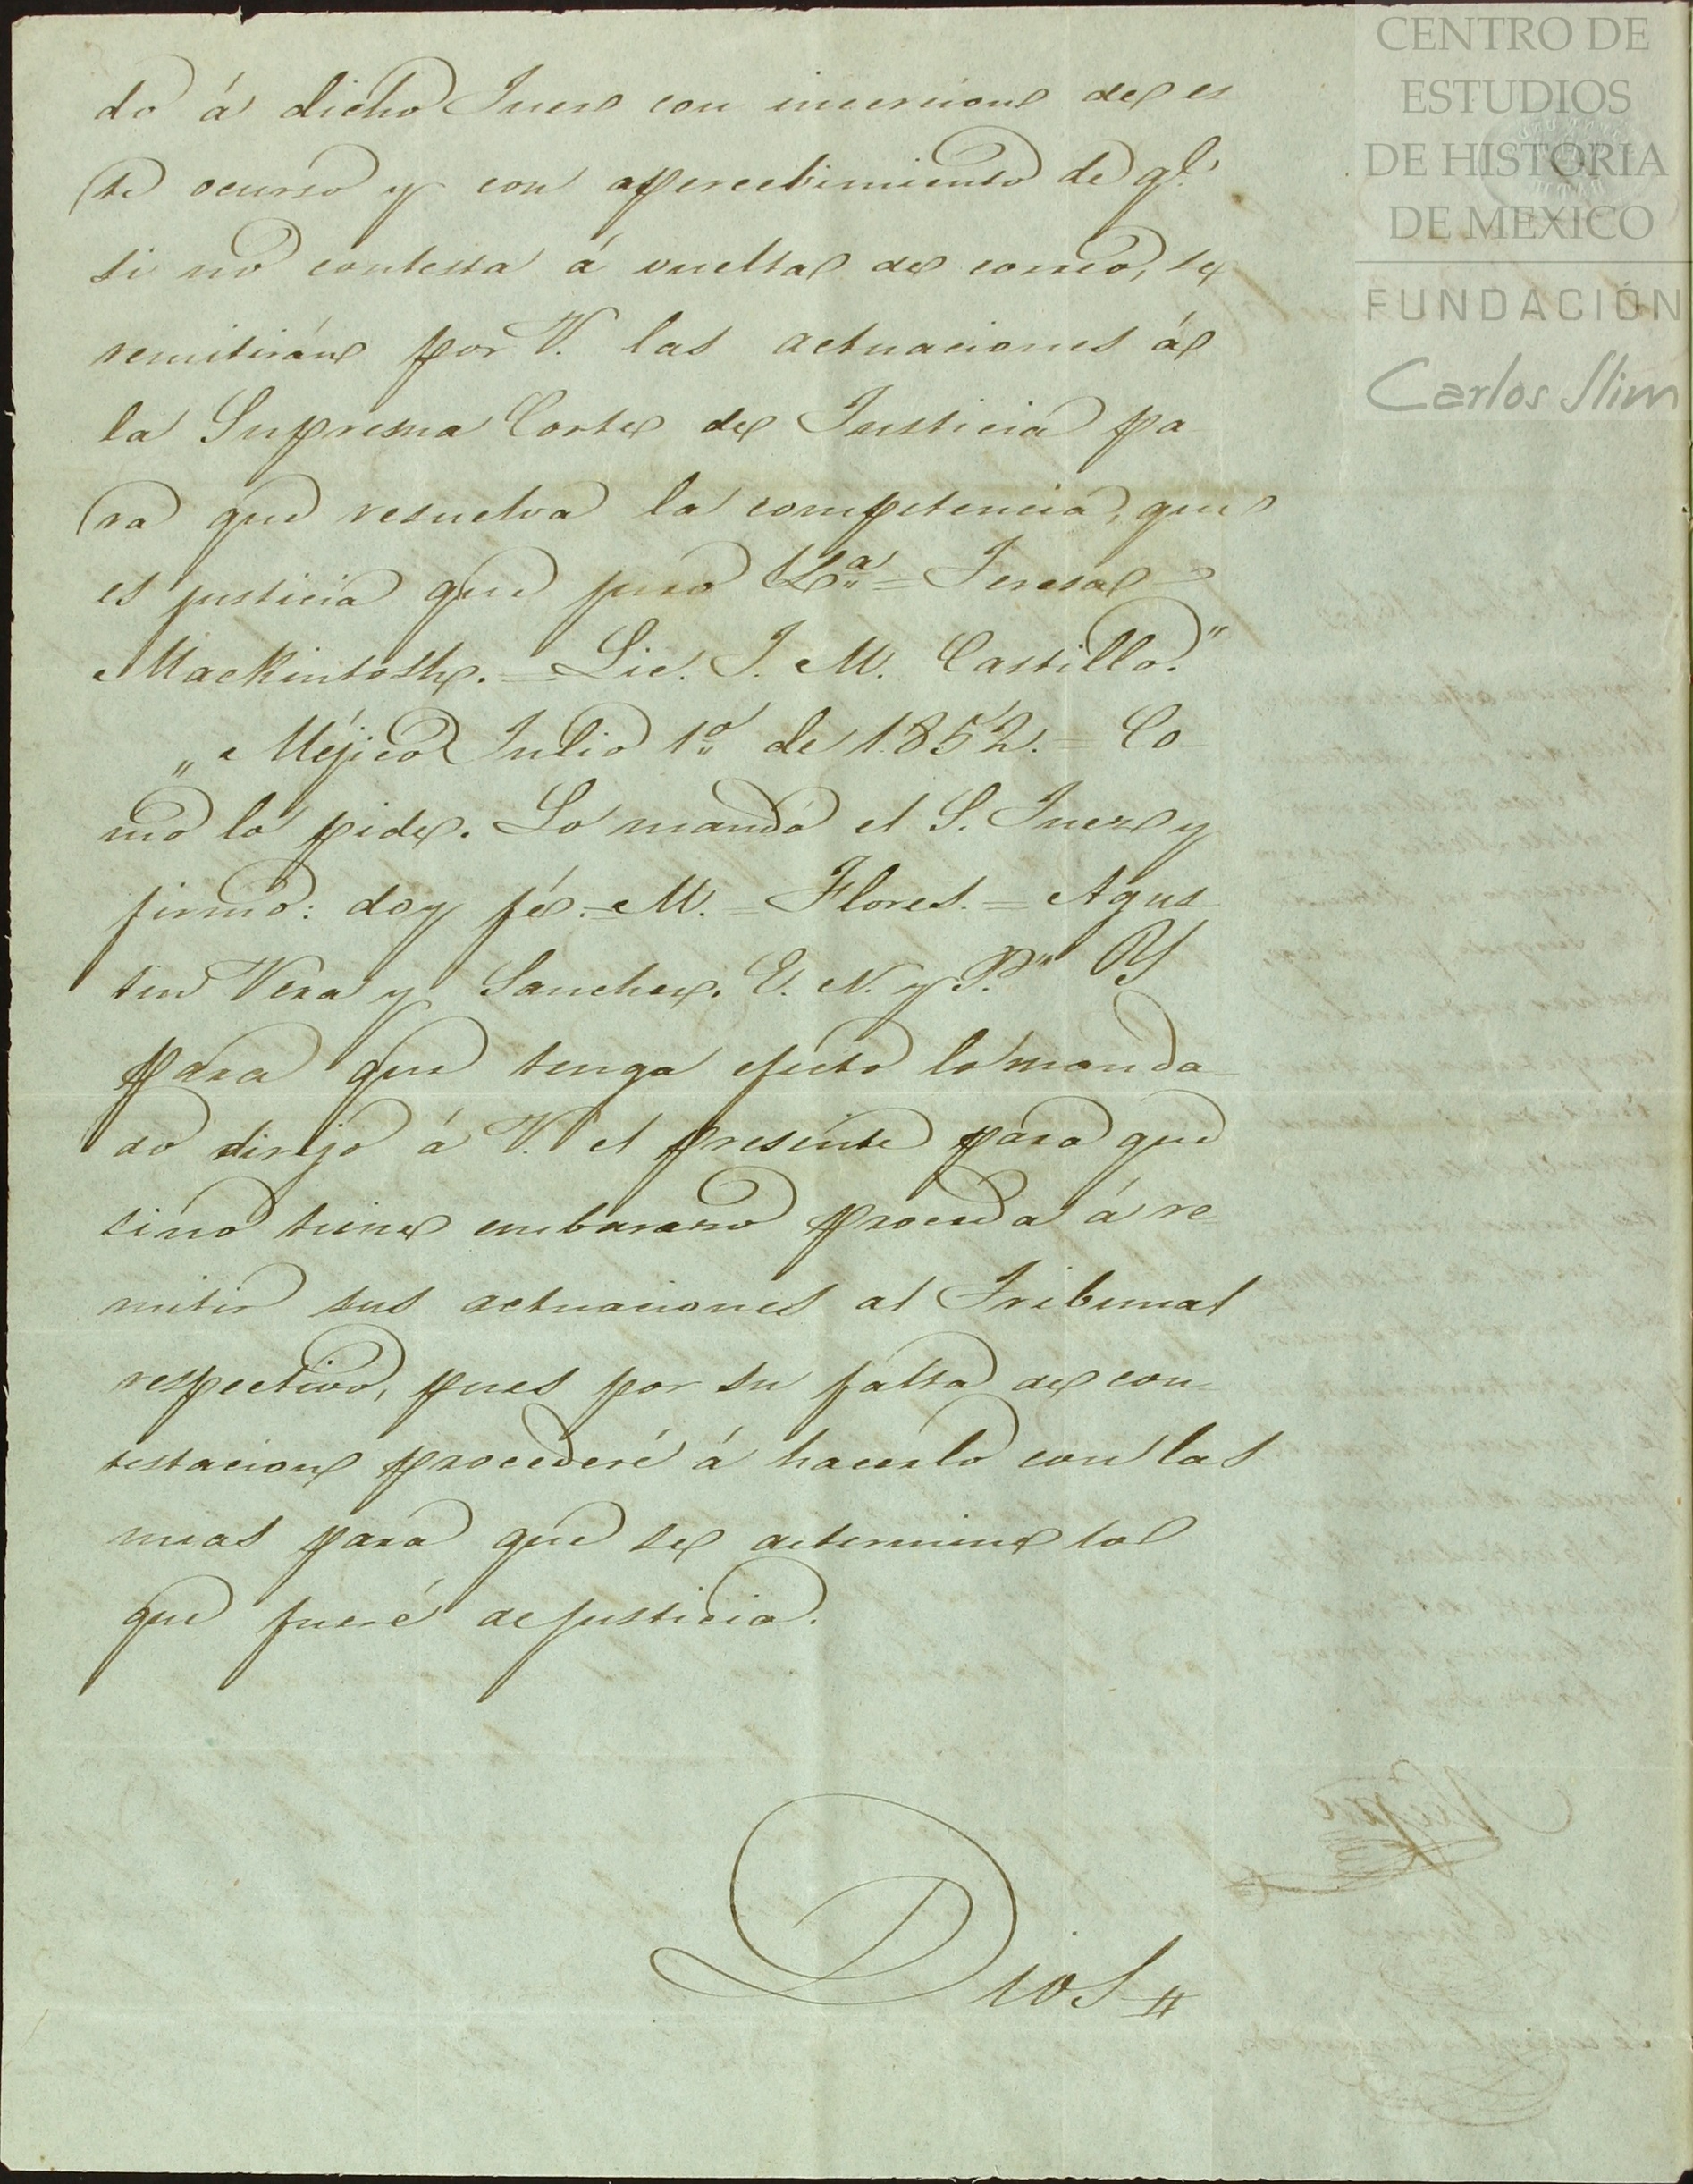 do á dicho Juez con incercion de es
te ocurso y con apercebimiento de q.e
si no contesta á vuelta de correo, se
remitirán por V. las actuaciones á
la Suprema Corte de Justicia pa
ra que resuelva la competencia, que
es justicia que juro &.a = Teresa
Mackintosh. = Lic. J. M. Castillo."
„Méjico Julio 1.o de 1852. = Co-
mo lo pide. Lo mandó el S. Juez y
firmó: doy fé. = M. = Flores. = Agus
tin Vera y Sanchez. E. N. y P." Y
para que tenga efecto lo manda-
do dirijo á V. el presente para que
si no tiene embarazo proceda á re-
mitir sus actuaciones al Tribunal
respectivo, pues por su falta de con-
testacion procederé á hacerlo con las
mias para que se determine lo
que fueré de justicia.
Dios
CENTRO DE
ESTUDIOS
DE HISTORIA
DE MEXICO
FUNDACIÓN
Carlos Slim